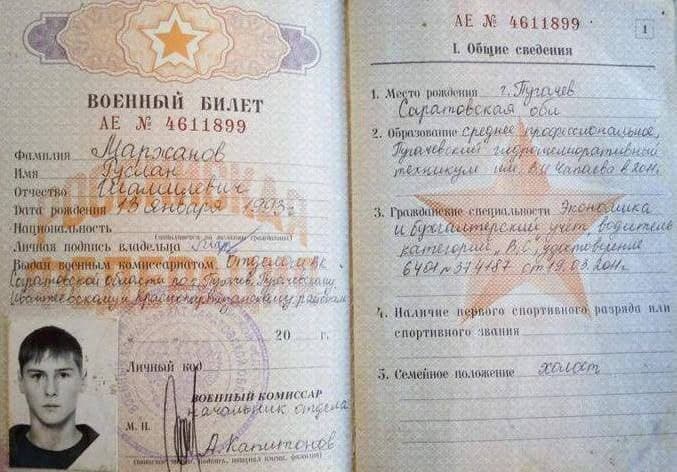 ВОЕННЫЙ БИЛЕТ
АЕ № 4611899
Фамилия Маржанов
Имя Руслан
Отчество Шамилевич
Дата рождения 13 января 1993
Национальность
Личная подпись владельца
Выдан военным комиссариатом Отделом ВК
Саратовской области по г. Пугачев, Пугачевскому,
Ивантеевскому и Краснопартизанскому районам
20 г.
Личный код
ВОЕННЫЙ КОМИССАР
начальник отдела
М. П.
А. Капитонов
АЕ № 4611899
1
I. Общие сведения
1. Место рождения г. Пугачев
Саратовская обл
2. Образование среднее профессиональное,
Пугачевский гидромелиоративный
техникум им. В.И. Чапаева в 2011г
3. Гражданские специальности Экономика
и бухгалтерский учет, водитель
категории „В,С", удостоверение
6401 №374187 от 19.03.2011г
4. Наличие первого спортивного разряда или
спортивного звания
5. Семейное положение холост